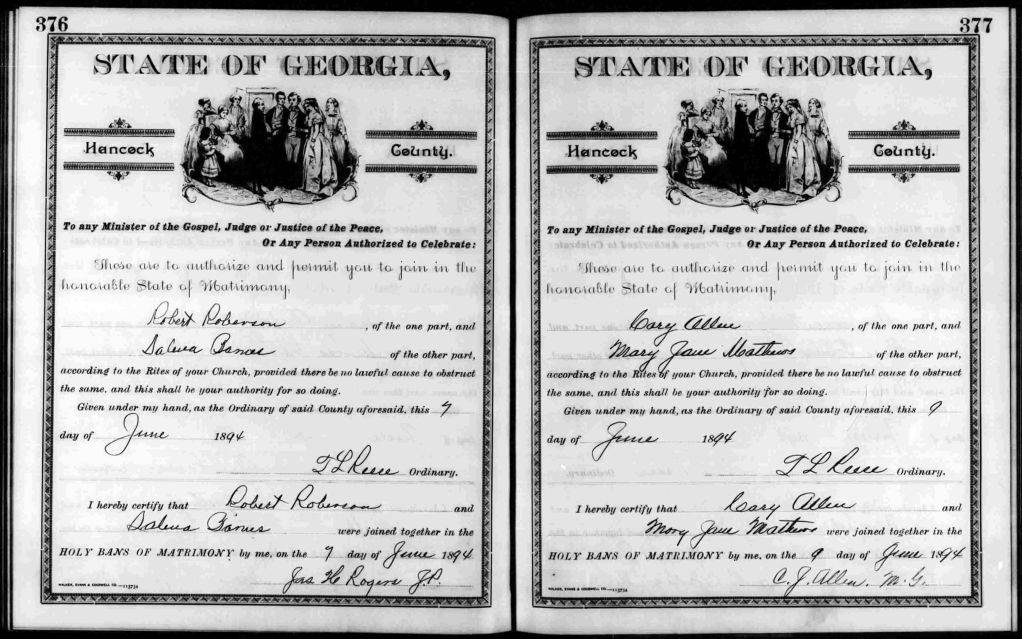 376
STATE OF GEORGIA,
Hancock County.
To any Minister of the Gospel, Judge or Justice of the Peace,
Or Any Person Authorized to Celebrate:
These are to authorize and permit you to join in the
honorable State of Matrimony,
Robert Roberson, of the one part, and
Salena Barnes of the other part,
according to the Rites of your Church, provided there be no lawful cause to obstruct
the same, and this shall be your authority for so doing.
Given under my hand, as the Ordinary of said County aforesaid, this 7
day of June 1894
T L Reese Ordinary.
I hereby certify that Robert Roberson and
Salena Barnes were joined together in the
HOLY BANS OF MATRIMONY by me, on the 7 day of June 1894
Jas H Rogers J.P.
WALKER, EVANS & COGSWELL CO.—113734
377
STATE OF GEORGIA,
Hancock County.
To any Minister of the Gospel, Judge or Justice of the Peace,
Or Any Person Authorized to Celebrate:
These are to authorize and permit you to join in the
honorable State of Matrimony,
Cary Allen, of the one part, and
Mary Jane Mathews of the other part,
according to the Rites of your Church, provided there be no lawful cause to obstruct
the same, and this shall be your authority for so doing.
Given under my hand, as the Ordinary of said County aforesaid, this 9
day of June 1894
T L Reese Ordinary.
I hereby certify that Cary Allen and
Mary Jane Mathews were joined together in the
HOLY BANS OF MATRIMONY by me, on the 9 day of June 1894
C. J. Allen. M. G.
WALKER, EVANS & COGSWELL CO.—113734